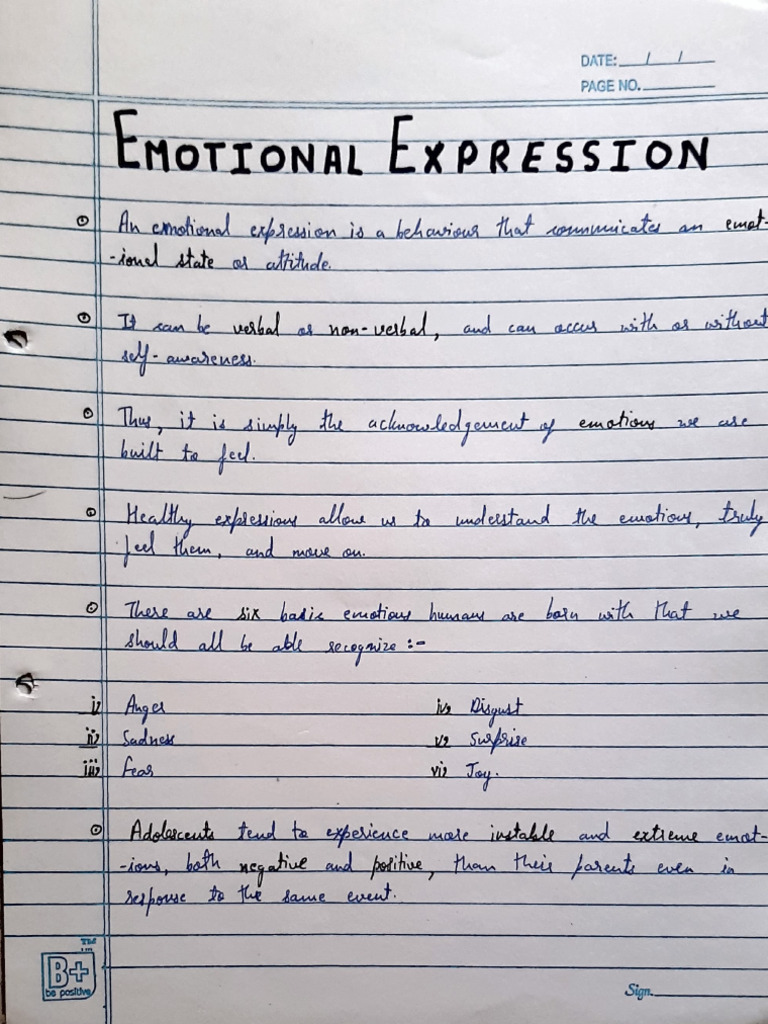 DATE: / /
PAGE NO.
EMOTIONAL EXPRESSION
An emotional expression is a behaviour that communicates an emot-
-ional state or attitude.
It can be verbal or non-verbal, and can occur with or without
self-awareness.
Thus, it is simply the acknowledgement of emotions we are
built to feel.
Healthy expressions allow us to understand the emotions, truly
feel them, and move on.
There are six basic emotions humans are born with that we
should all be able recognize :-
i) Anger iv) Disgust
ii) Sadness v) Surprise
iii) Fear vi) Joy.
Adolescents tend to experience more instable and extreme emot-
-ions, both negative and positive, than their parents even in
response to the same event.
TM
B+
be positive
Sign.